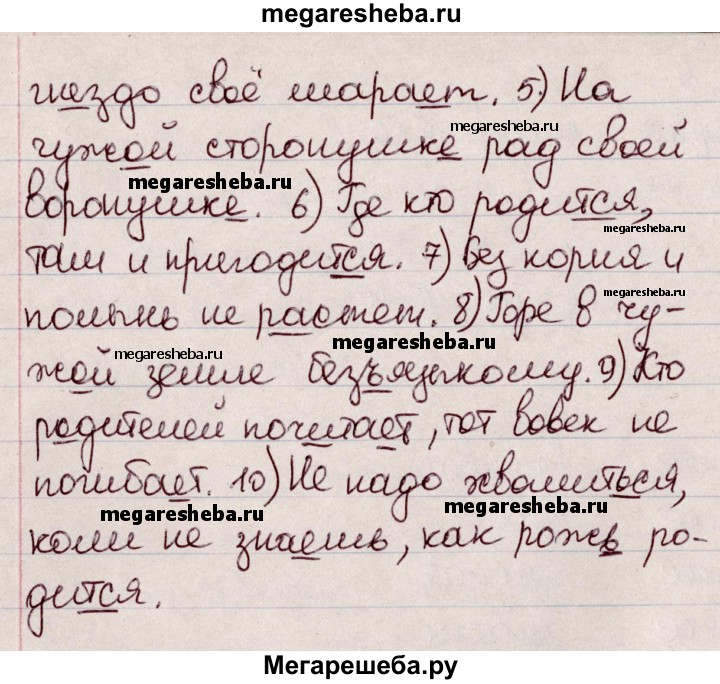 megaresheba.ru
гнездо своё марает. 5) На
megaresheba.ru
чужой сторонушке рад своей
megaresheba.ru
воронушке. 6) Где кто родится,
megaresheba.ru
там и пригодится. 7) Без корня и
megaresheba.ru
полынь не растет. 8) Горе в чу-
megaresheba.ru
megaresheba.ru
жой земле безъязыкому. 9) Кто
родителей почитает, тот вовек не
погибает. 10) Не надо хвалиться,
megaresheba.ru
megaresheba.ru
коли не знаешь, как рожь ро-
дится.
Мегарешеба.ру